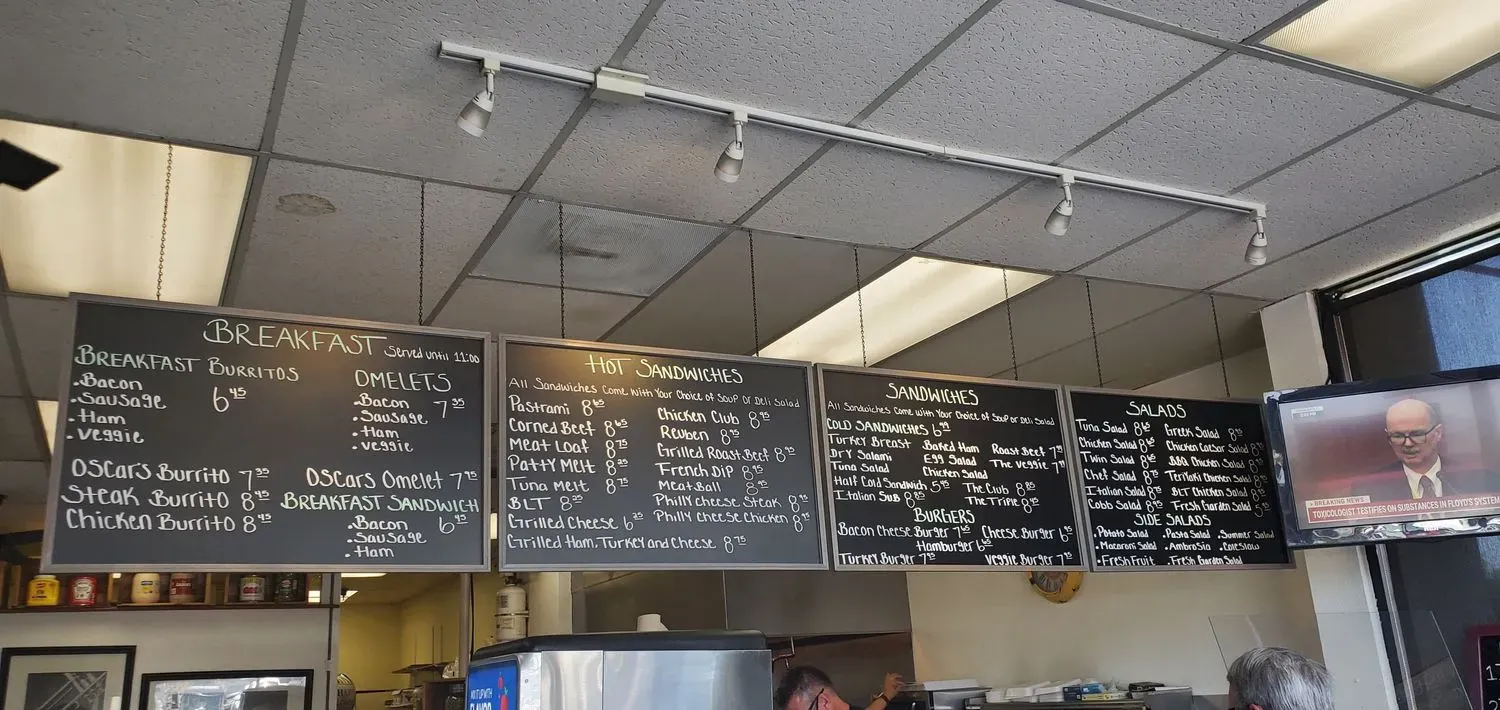 BREAKFAST Served until 11:00
BREAKFAST BURRITOS
.Bacon
.Sausage 6 45
.Ham
.Veggie
OSCars Burrito 7 35
Steak Burrito 8 45
Chicken Burrito 8 45
OMELETS
.Bacon
.Sausage 7 35
.Ham
.veggie
OSCars Omelet 7 95
BREAKFAST SANDWICH
.Bacon 6 45
.Sausage
.Ham
HOT SANDWICHES
All Sandwiches Come With Your Choice of SOUP Or Deli Salad
Pastrami 8 65
Corned Beef 8 65
Meat Loaf 8 75
Patty Melt 8 25
Tuna Melt 8 75
BLT 8 25
Grilled Cheese 6 25
Grilled Ham, Turkey and Cheese 8 75
Chicken Club 8 95
Reuben 8 95
Grilled Roast Beef 8 95
French Dip 8 95
Meat Ball 8 95
Philly Cheese Steak 8 95
Philly Cheese Chicken 8 95
SANDWICHES
All Sandwiches Come With Your Choice of Soup or Deli Salad
COLD SANDWICHES 6 99
Turkey Breast Baked Ham Roast Beef
Dry Salami Egg Salad The Veggie
Tuna Salad Chicken Salad
Half Cold Sandwich The Club
Italian Sub The Trike
BURGERS
Bacon Cheese Burger Cheese Burger
Hamburger
Turkey Burger Veggie Burger
SALADS
Tuna Salad
Chicken Salad
Twin Salad
Chef Salad
Italian Salad
Cobb Salad
Greek Salad
Chicken Caesar Salad
BBQ Chicken Salad
Teriyaki Chicken Salad
BLT Chicken Salad
Fresh Garden Salad
SIDE SALADS
.Potato Salad .Pasta Salad .Summer Salad
.Macaroni Salad .Ambrosia .Coleslaw
.Fresh Fruit .Fresh Garden Salad
BREAKING NEWS
TOXICOLOGIST TESTIFIES ON SUBSTANCES IN FLOYD'S SYSTEM
MIX IT UP WITH
FLAVOR